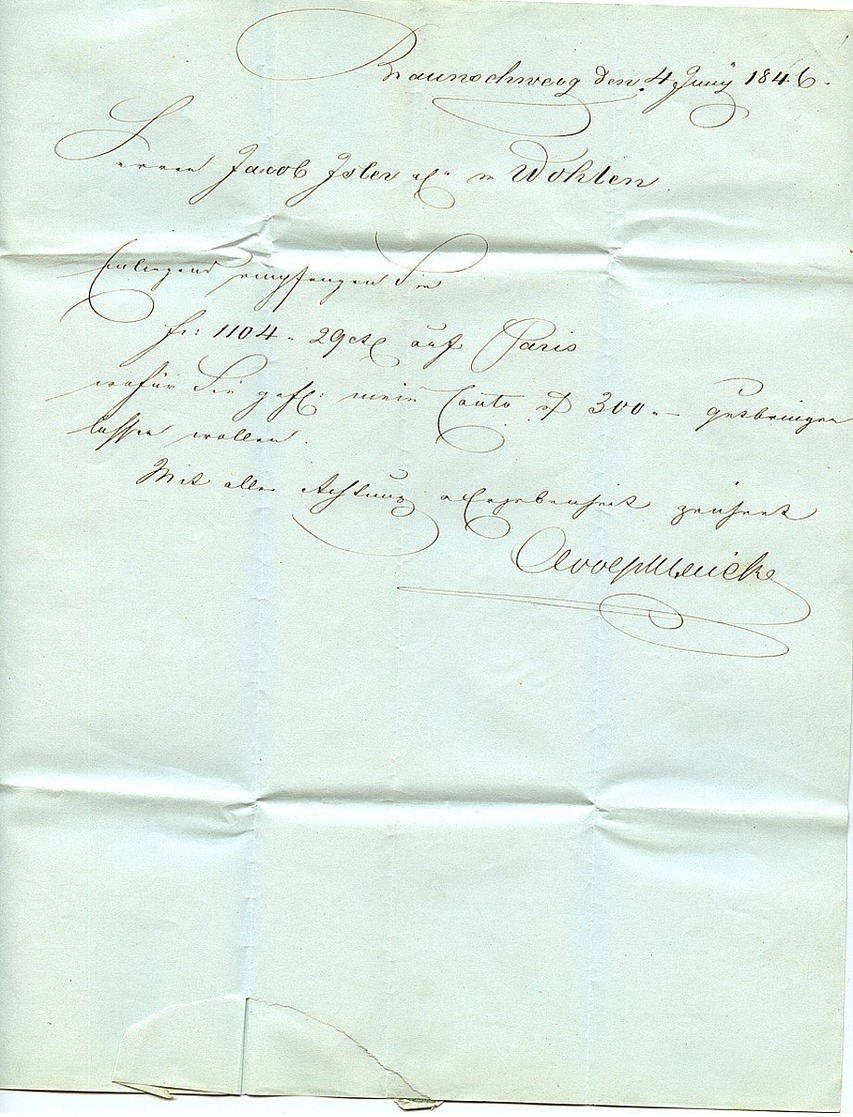 Braunschweig den 4 Juny 1846.
Herren Jacob Isler & Co in Wohlen
Einliegend empfangen Sie
fr: 1104 " 29 cts auf Paris
wofür Sie gefl: mein Conto 300 " —
lassen wollen.
Mit aller Achtung & Ergebenheit zeichnet
Adolph